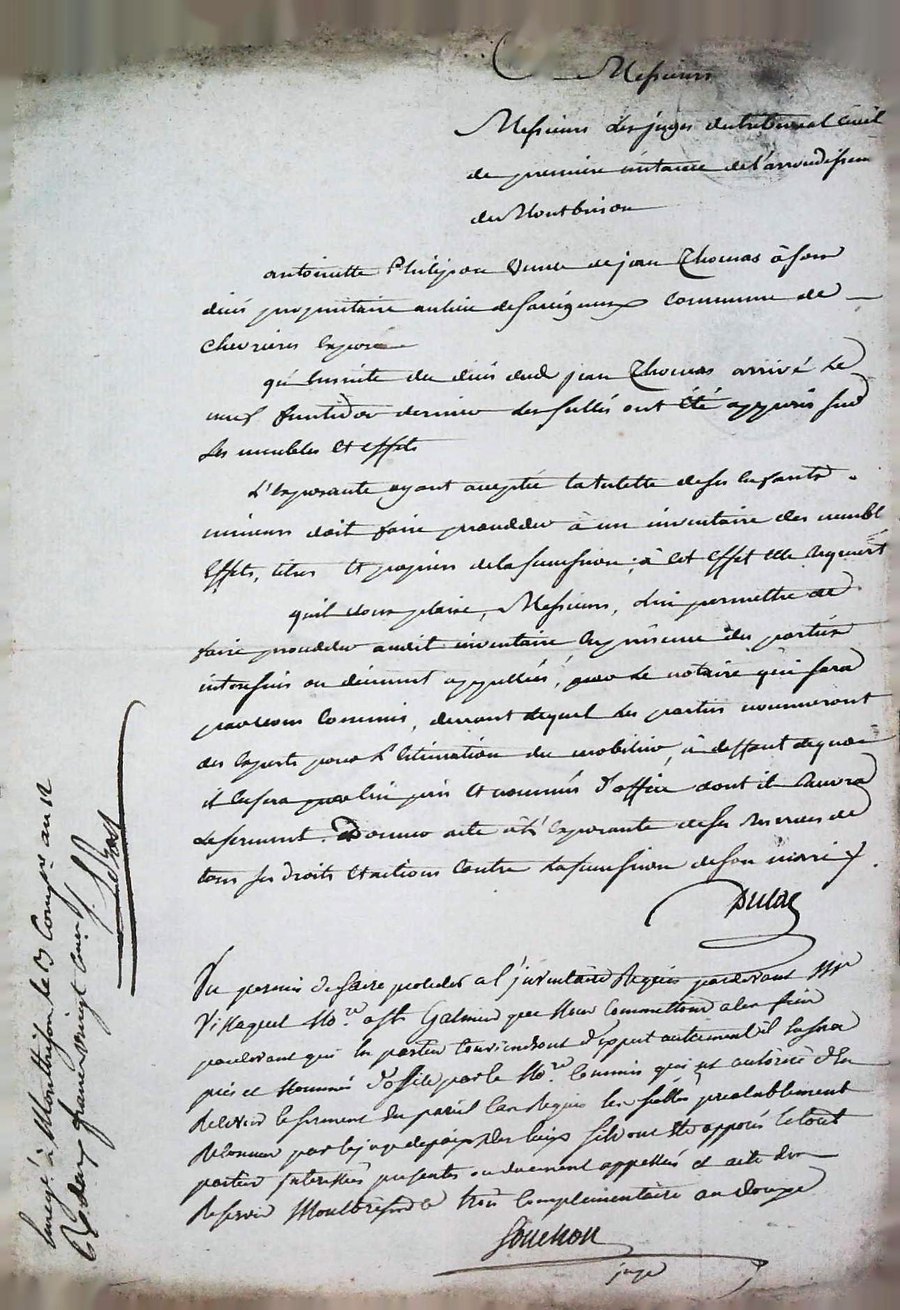 Messieurs
Messieurs les juges du tribunal Civil
de premiere instance de l'arrondissem
de Montbrison
antoinette Philipon Veuve de jean Thomas à son
décés propriétaire au lieu de commune de
Chevrieres Expose
qu'ensuite du décés dud jean Thomas arrivé le
neuf fructidor dernier des sellés ont été apposés sur
les meubles et effets
L'Exposante ayant acceptée la tutelle de ses Enfants
mineurs doit faire proceder à un inventaire des meubl
Effets, titres et papiers de la succession ; à cet effet elle requiert
quil vous plaise, Messieurs, lui permettre de
faire proceder audit inventaire En présence des parties
interessées ou duement appellées, par le notaire qui sera
par vous Commis, devant lequel les parties nommeront
des Experts pour L'Estimation du mobilier, à deffaut de quoi
il En sera par lui pris et nommés d'office dont il recevra
le serment. Donner acte à L'Exposante de ses reserves de
tous ses droits et actions Contre la succession de son mari
Dulac
Vu permis de faire proceder a l'inventaire Requis pardevant Mr
Villaquet Nore a St Galmier que Nous Commettons a ces fin
pardevant qui les parties Conviendront d'expert autrement il En sera
pris et Nommés d'office par le Nore Commis qui est autorisé d'En
Recevoir le serment du pareil Cas Requis les sellés prealablement
Reconnus par le juge de paix des lieux s'ils ont été apposés le tout
parties Interessées presentes ou duement appellées et acte des
Reserves Montbrison le trois Complementaire an douze
Souchon
juge
Enregé à Montbrison le 3 Compre an 12
Rs deux francs vingt Cmes